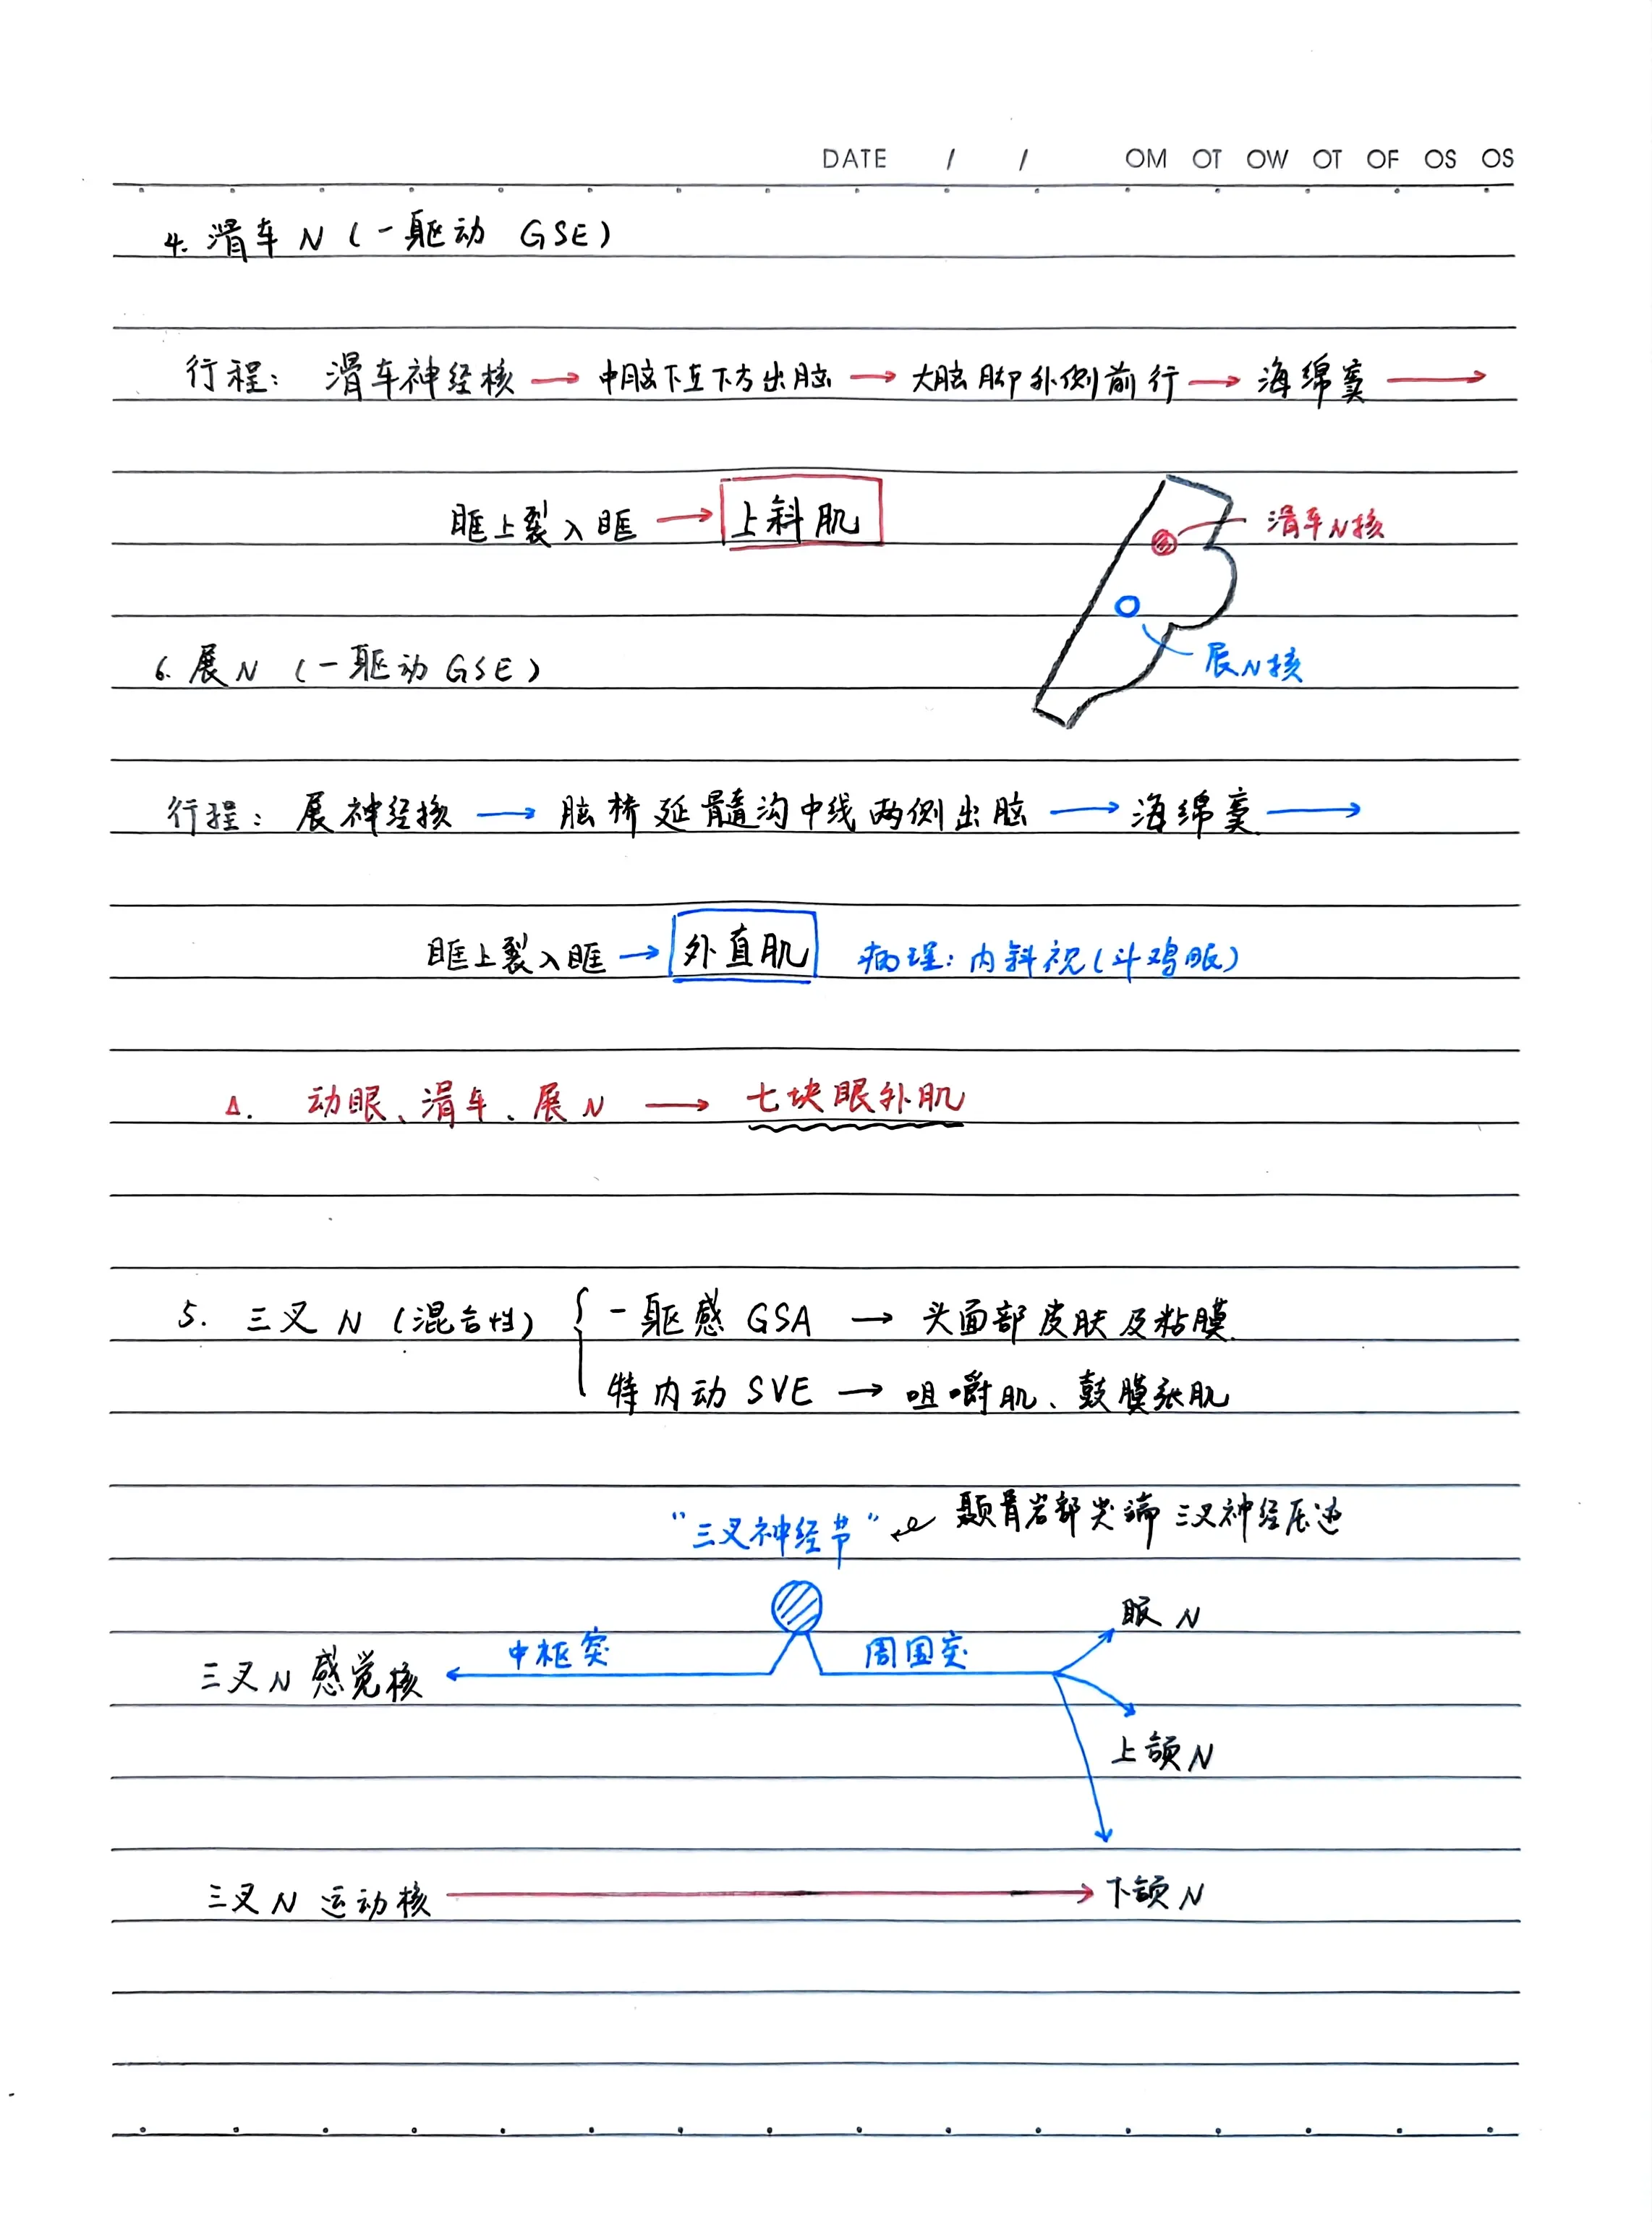 DATE / / OM OT OW OT OF OS OS
4. 滑车N(一躯动 GSE)
行程: 滑车神经核 → 中脑下丘下方出脑 → 大脑脚外侧前行 → 海绵窦 →
眶上裂入眶 → 上斜肌
滑车N核
展N核
6. 展N (一躯动GSE)
行程: 展神经核 → 脑桥延髓沟中线两侧出脑 → 海绵窦 →
眶上裂入眶 → 外直肌 病理: 内斜视(斗鸡眼)
△. 动眼、滑车、展N → 七块眼外肌
5. 三叉N(混合性) { 一躯感 GSA → 头面部皮肤及粘膜.
特内动 SVE → 咀嚼肌、鼓膜张肌
"三叉神经节" ← 颞骨岩部尖端 三叉神经压迹
眼N
三叉N感觉核 ← 中枢突 周围突
上颌N
三叉N运动核 → 下颌N